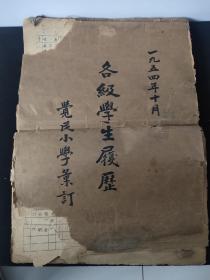 一九五四年十月
各級學生履歷
覺民小學彙訂